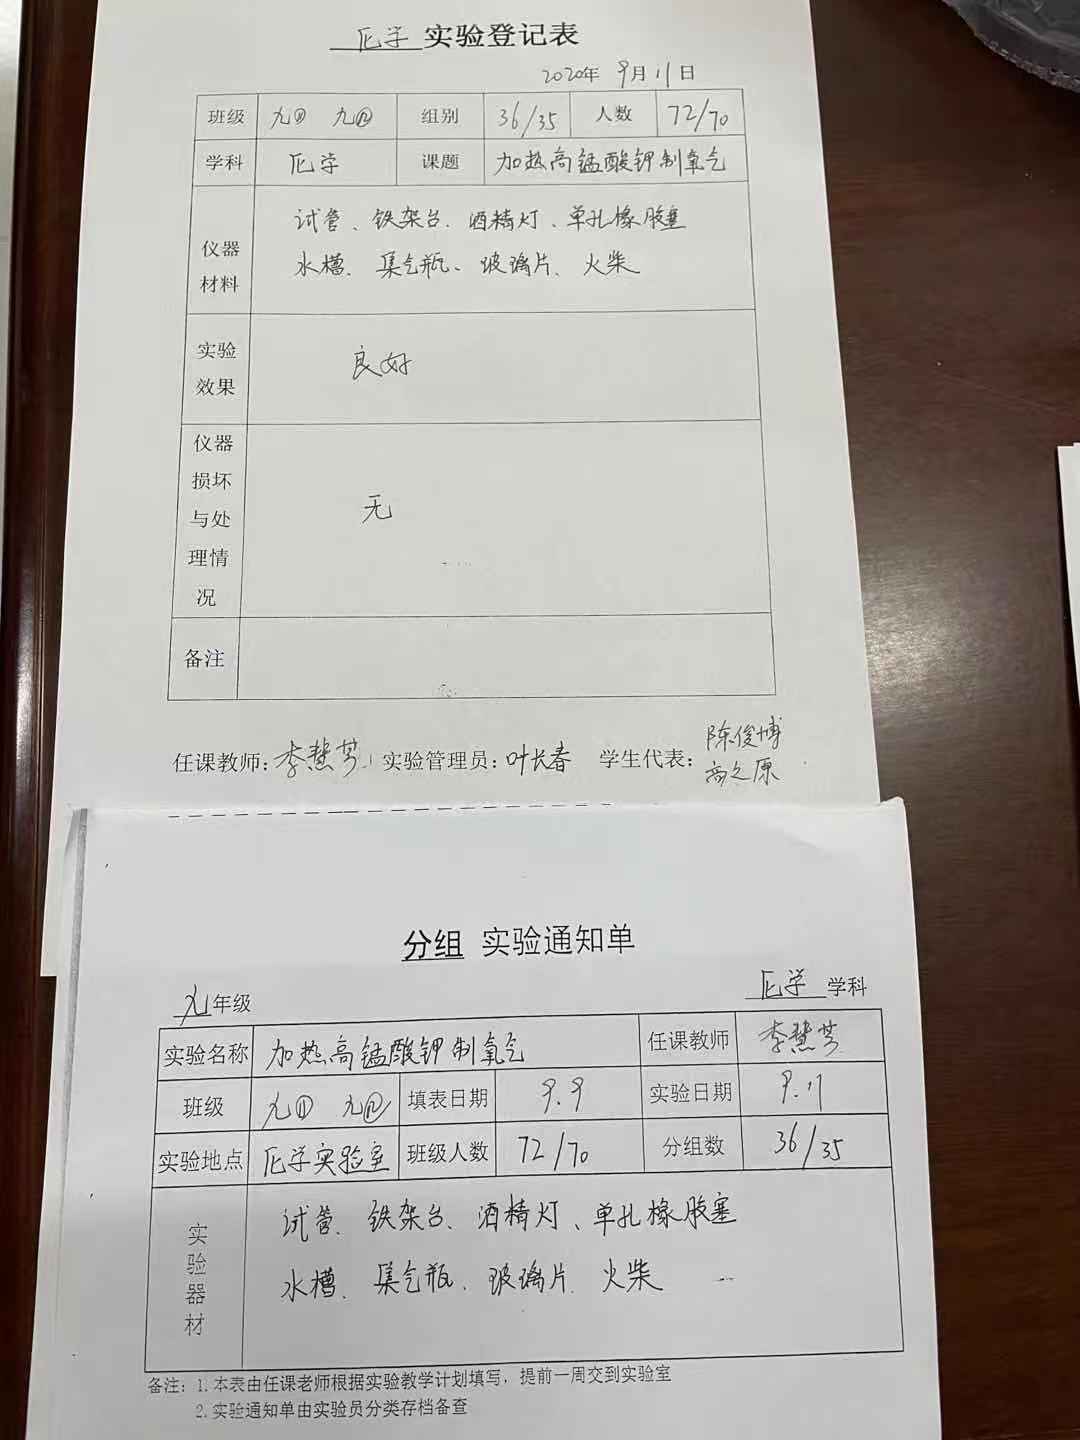 化学 实验登记表
2020年 9月11日
班级 九⑪ 九⑫ 组别 36/35 人数 72/70
学科 化学 课题 加热高锰酸钾制氧气
仪器材料 试管、铁架台、酒精灯、单孔橡胶塞
水槽、集气瓶、玻璃片、火柴
实验效果 良好
仪器损坏与处理情况 无
备注
任课教师：李慧芳 实验管理员：叶长春 学生代表：陈俊博
高之原
分组 实验通知单
九年级 化学 学科
实验名称 加热高锰酸钾制氧气 任课教师 李慧芳
班级 九⑪ 九⑫ 填表日期 9.9 实验日期 9.11
实验地点 化学实验室 班级人数 72/70 分组数 36/35
实验器材 试管、铁架台、酒精灯、单孔橡胶塞
水槽、集气瓶、玻璃片、火柴
备注：1.本表由任课老师根据实验教学计划填写，提前一周交到实验室
2.实验通知单由实验员分类存档备查